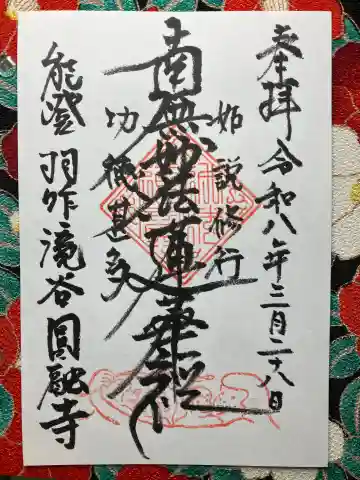 奉拝 令和八年三月二十八日
如説修行
南無妙法蓮華経
功徳甚多
能登 羽咋滝谷 圓融寺